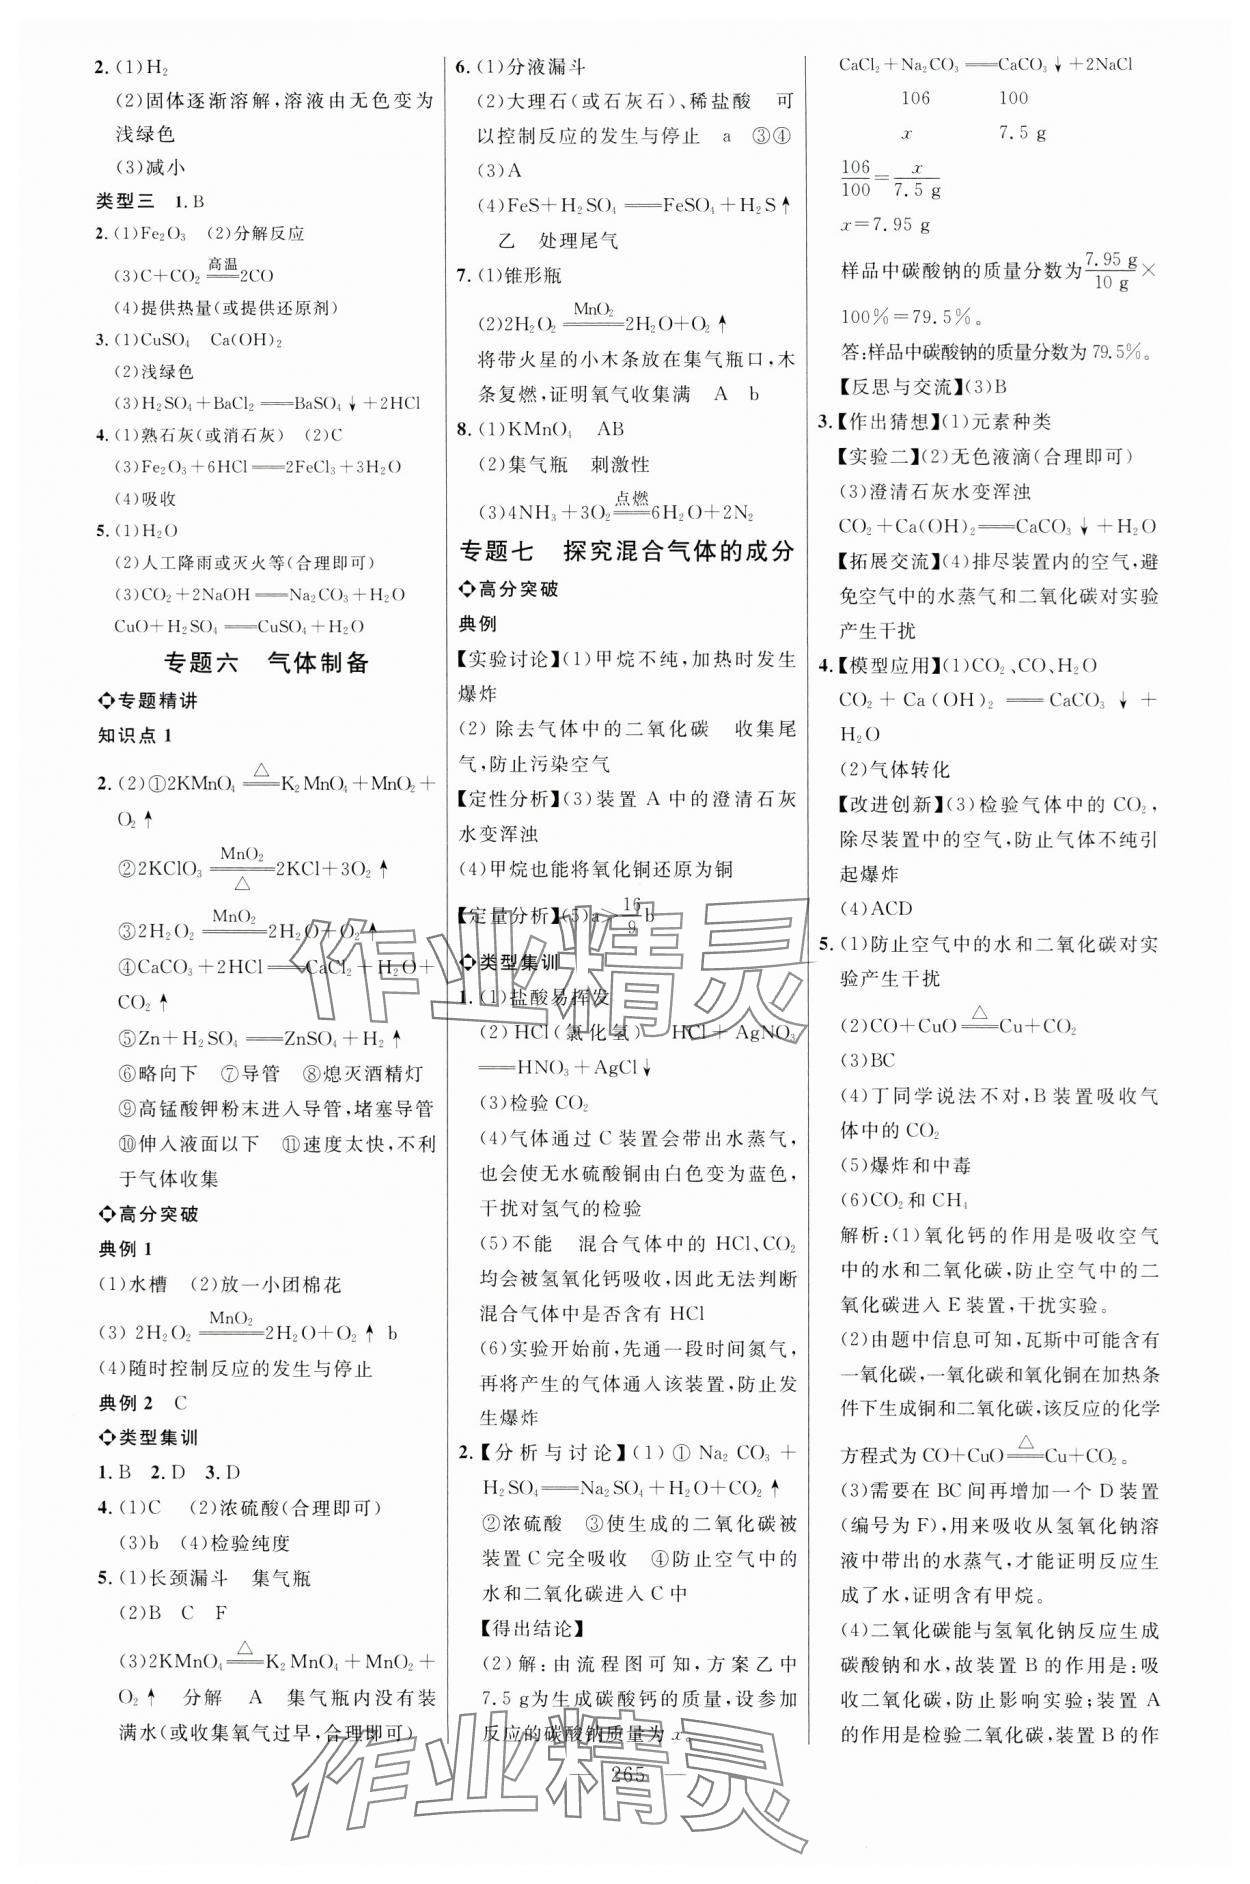 2. (1)H₂
(2)固体逐渐溶解,溶液由无色变为
浅绿色
(3)减小
类型三 1. B
2. (1)Fe₂O₃ (2)分解反应
(3)C+CO₂ =高温= 2CO
(4)提供热量(或提供还原剂)
3. (1)CuSO₄ Ca(OH)₂
(2)浅绿色
(3)H₂SO₄+BaCl₂══BaSO₄↓+2HCl
4. (1)熟石灰(或消石灰) (2)C
(3)Fe₂O₃+6HCl══2FeCl₃+3H₂O
(4)吸收
5. (1)H₂O
(2)人工降雨或灭火等(合理即可)
(3)CO₂+2NaOH══Na₂CO₃+H₂O
CuO+H₂SO₄══CuSO₄+H₂O
专题六 气体制备
专题精讲
知识点 1
2. (2)①2KMnO₄ =△= K₂MnO₄+MnO₂+
O₂↑
②2KClO₃ =MnO₂/△= 2KCl+3O₂↑
③2H₂O₂ =MnO₂= 2H₂O+O₂↑
④CaCO₃+2HCl══CaCl₂+H₂O+
CO₂↑
⑤Zn+H₂SO₄══ZnSO₄+H₂↑
⑥略向下 ⑦导管 ⑧熄灭酒精灯
⑨高锰酸钾粉末进入导管,堵塞导管
⑩伸入液面以下 ⑪速度太快,不利
于气体收集
高分突破
典例 1
(1)水槽 (2)放一小团棉花
(3) 2H₂O₂ =MnO₂= 2H₂O+O₂↑ b
(4)随时控制反应的发生与停止
典例 2 C
类型集训
1. B 2. D 3. D
4. (1)C (2)浓硫酸(合理即可)
(3)b (4)检验纯度
5. (1)长颈漏斗 集气瓶
(2)B C F
(3)2KMnO₄ =△= K₂MnO₄+MnO₂+
O₂↑ 分解 A 集气瓶内没有装
满水(或收集氧气过早,合理即可)
6. (1)分液漏斗
(2)大理石(或石灰石)、稀盐酸 可
以控制反应的发生与停止 a ③④
(3)A
(4)FeS+H₂SO₄══FeSO₄+H₂S↑
乙 处理尾气
7. (1)锥形瓶
(2)2H₂O₂ =MnO₂= 2H₂O+O₂↑
将带火星的小木条放在集气瓶口,木
条复燃,证明氧气收集满 A b
8. (1)KMnO₄ AB
(2)集气瓶 刺激性
(3)4NH₃+3O₂ =点燃= 6H₂O+2N₂
专题七 探究混合气体的成分
高分突破
典例
【实验讨论】(1)甲烷不纯,加热时发生
爆炸
(2) 除去气体中的二氧化碳 收集尾
气,防止污染空气
【定性分析】(3)装置 A 中的澄清石灰
水变浑浊
(4)甲烷也能将氧化铜还原为铜
【定量分析】(5)a>16/9 b
类型集训
1. (1)盐酸易挥发
(2) HCl(氯化氢) HCl+AgNO₃
══HNO₃+AgCl↓
(3)检验 CO₂
(4)气体通过 C 装置会带出水蒸气,
也会使无水硫酸铜由白色变为蓝色,
干扰对氢气的检验
(5)不能 混合气体中的 HCl、CO₂
均会被氢氧化钙吸收,因此无法判断
混合气体中是否含有 HCl
(6)实验开始前,先通一段时间氮气,
再将产生的气体通入该装置,防止发
生爆炸
2.【分析与讨论】(1) ① Na₂CO₃+
H₂SO₄══Na₂SO₄+H₂O+CO₂↑
②浓硫酸 ③使生成的二氧化碳被
装置 C 完全吸收 ④防止空气中的
水和二氧化碳进入 C 中
【得出结论】
(2)解:由流程图可知,方案乙中
7.5 g为生成碳酸钙的质量,设参加
反应的碳酸钠质量为 x。
CaCl₂+Na₂CO₃══CaCO₃↓+2NaCl
106 100
x 7.5 g
106/100=x/7.5 g
x=7.95 g
样品中碳酸钠的质量分数为 7.95 g/10 g ×
100%=79.5%。
答:样品中碳酸钠的质量分数为 79.5%。
【反思与交流】(3)B
3.【作出猜想】(1)元素种类
【实验二】(2)无色液滴(合理即可)
(3)澄清石灰水变浑浊
CO₂+Ca(OH)₂══CaCO₃↓+H₂O
【拓展交流】(4)排尽装置内的空气,避
免空气中的水蒸气和二氧化碳对实验
产生干扰
4.【模型应用】(1)CO₂、CO、H₂O
CO₂+Ca(OH)₂══CaCO₃↓+
H₂O
(2)气体转化
【改进创新】(3)检验气体中的 CO₂,
除尽装置中的空气,防止气体不纯引
起爆炸
(4)ACD
5. (1)防止空气中的水和二氧化碳对实
验产生干扰
(2)CO+CuO =△= Cu+CO₂
(3)BC
(4)丁同学说法不对,B 装置吸收气
体中的 CO₂
(5)爆炸和中毒
(6)CO₂和 CH₄
解析:(1)氧化钙的作用是吸收空气
中的水和二氧化碳,防止空气中的二
氧化碳进入 E 装置,干扰实验。
(2)由题中信息可知,瓦斯中可能含有
一氧化碳,一氧化碳和氧化铜在加热条
件下生成铜和二氧化碳,该反应的化学
方程式为 CO+CuO =△= Cu+CO₂。
(3)需要在 BC 间再增加一个 D 装置
(编号为 F),用来吸收从氢氧化钠溶
液中带出的水蒸气,才能证明反应生
成了水,证明含有甲烷。
(4)二氧化碳能与氢氧化钠反应生成
碳酸钠和水,故装置 B 的作用是:吸
收二氧化碳,防止影响实验;装置 A
的作用是检验二氧化碳,装置 B 的作
265
作业精灵
作业精灵